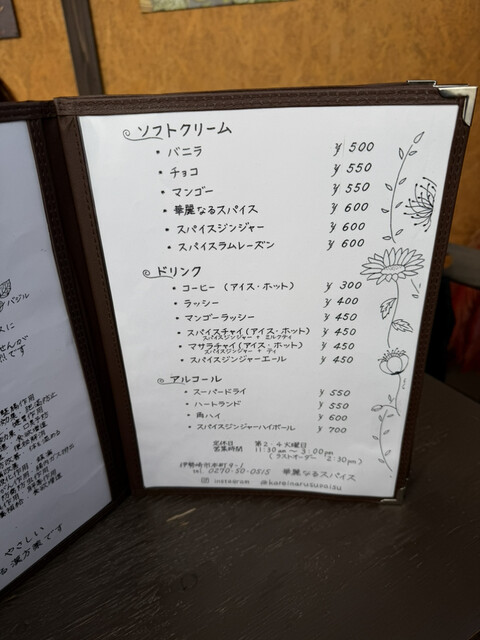 ソフトクリーム
・バニラ ¥500
・チョコ ¥550
・マンゴー ¥550
・華麗なるスパイス ¥600
・スパイスジンジャー ¥600
・スパイスラムレーズン ¥600
ドリンク
・コーヒー（アイス・ホット） ¥300
・ラッシー ¥400
・マンゴーラッシー ¥450
・スパイスチャイ（アイス・ホット） ¥450
スパイスジンジャー + ミルクティ
・マサラチャイ（アイス・ホット） ¥450
スパイスジンジャー + ティ
・スパイスジンジャーエール ¥450
アルコール
・スーパードライ ¥550
・ハートランド ¥550
・角ハイ ¥600
・スパイスジンジャーハイボール ¥700
定休日 第2・4火曜日
営業時間 11:30am〜3:00pm
（ラストオーダー 2:30pm）
伊勢崎市本町9-1
tel. 0270-50-0815 華麗なるスパイス
instagram @kareinarusupaisu
バジル
スに
せんが
です
やさしい
る漢方薬です